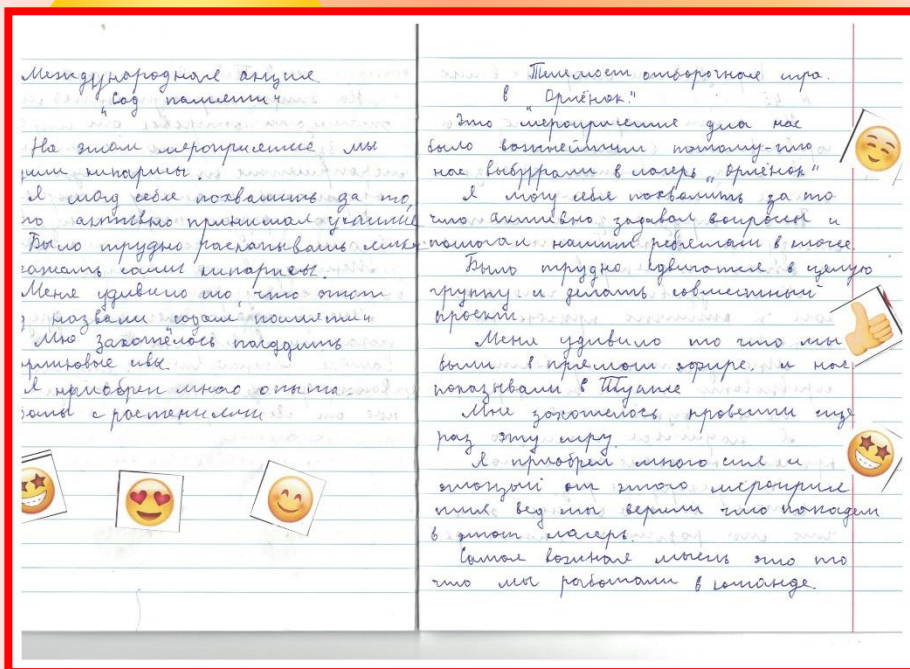 Международная акция
"Сад памяти"
На этом мероприятие мы
кипарисы.
Я могу себя похвалить да то,
активно принимал участие
Было трудно раскапывать
сами кипарисы.
Меня удивило то, что этот
назвали садом памяти
Мне захотелось посадить
ивы.
Я приобрел много опыта
с растениями
Телемост отборочная игра.
в "Орлёнок"
Это мероприятие для нас
было важнейшим потому-что
нас выбурали в лагерь "Орлёнок"
Я могу себя похвалить за то
что активно задавал вопросы и
помогал нашим ребятам в
Было трудно сдвигатся в целую
группу и делать совместный
проект
Меня удивило то что мы
были в прямом эфире. и нас
показывали в Туапсе
Мне захотелось провести еще
раз эту игру.
Я приобрел много сил и
эмоций от этого мероприя
тия вед мы верили что попадем
в этот лагерь.
Самая важная мысль это то
что мы работали в команде.